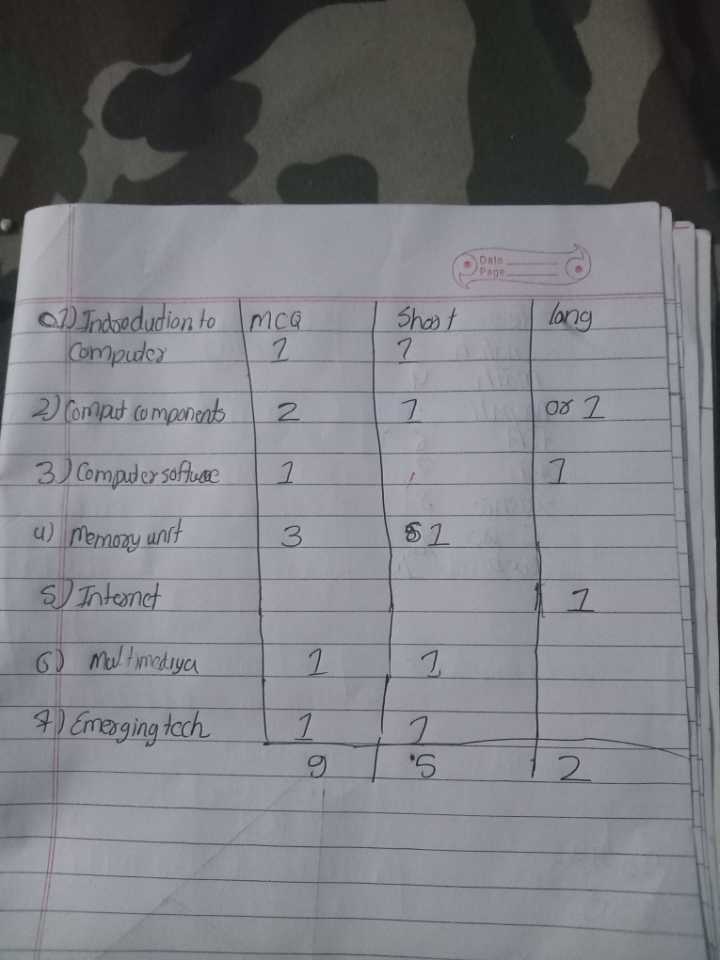 Date
Page
1) Introduction to MCQ Short long
Computer 1 1
2) Comput components 2 1 or 1
3) Computer software 1 1
4) Memory unit 3 1
5) Internet 1
6) Maltimediya 1 1
7) Emerging tech 1 1
9 5 2